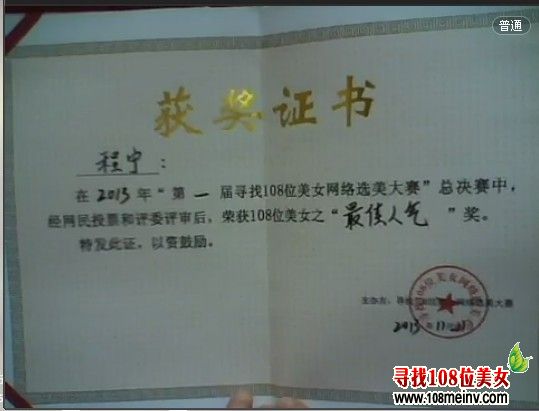 普通
获奖证书
程宁：
在2013年“第一届寻找108位美女网络选美大赛”总决赛中，
经网民投票和评委评审后，荣获108位美女之“最佳人气”奖。
特发此证，以资鼓励。
主办方：寻找108位美女网络选美大赛
2013
寻找108位美女
www.108meinv.com